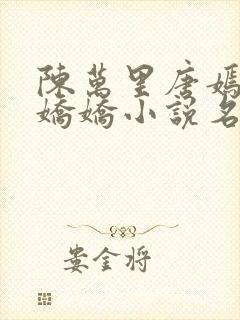 陳萬里唐嫣
嬌嬌小說名
婁金将